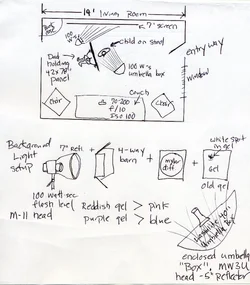 19' Living Room
7' screen
100 w-s
Child on stool
entry way
Dad
holding
42x78"
panel
100 w-s
umbrella box
Window
Couch
Chair
Chair
f/10
ISO 100
Background
Light
setup
7" Refl.
4-way
barn
mylar
diff
white spot
in gel
Gel
old gel
100 watt-sec
flash level
M-11 head
Reddish gel > pink
purple gel > blue
enclosed umbrella
"Box", MW3U
head -5" Reflector